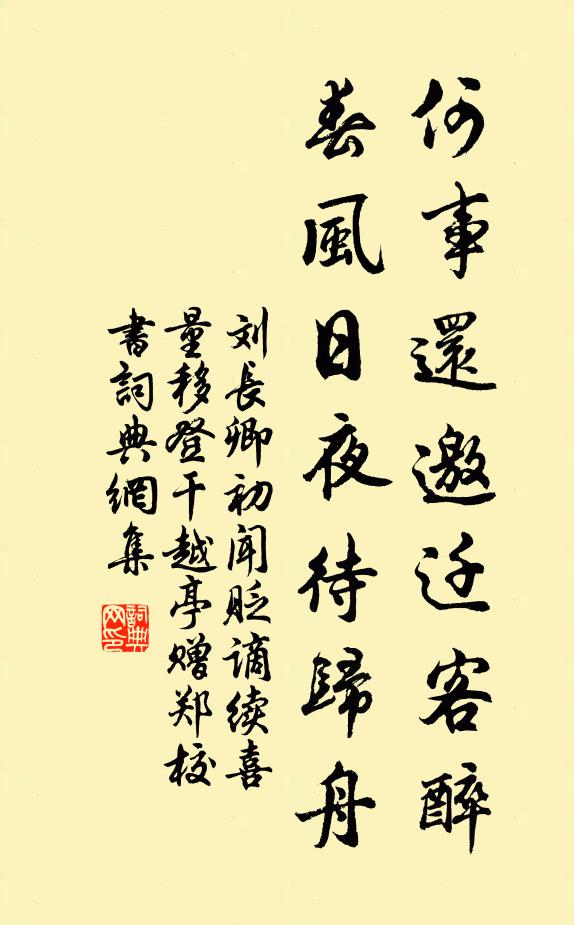 何事還邀迁客醉
春風日夜待歸舟
刘長卿初闻贬谪续喜
量移登干越亭赠郑校
書詞典網集
詞典網印